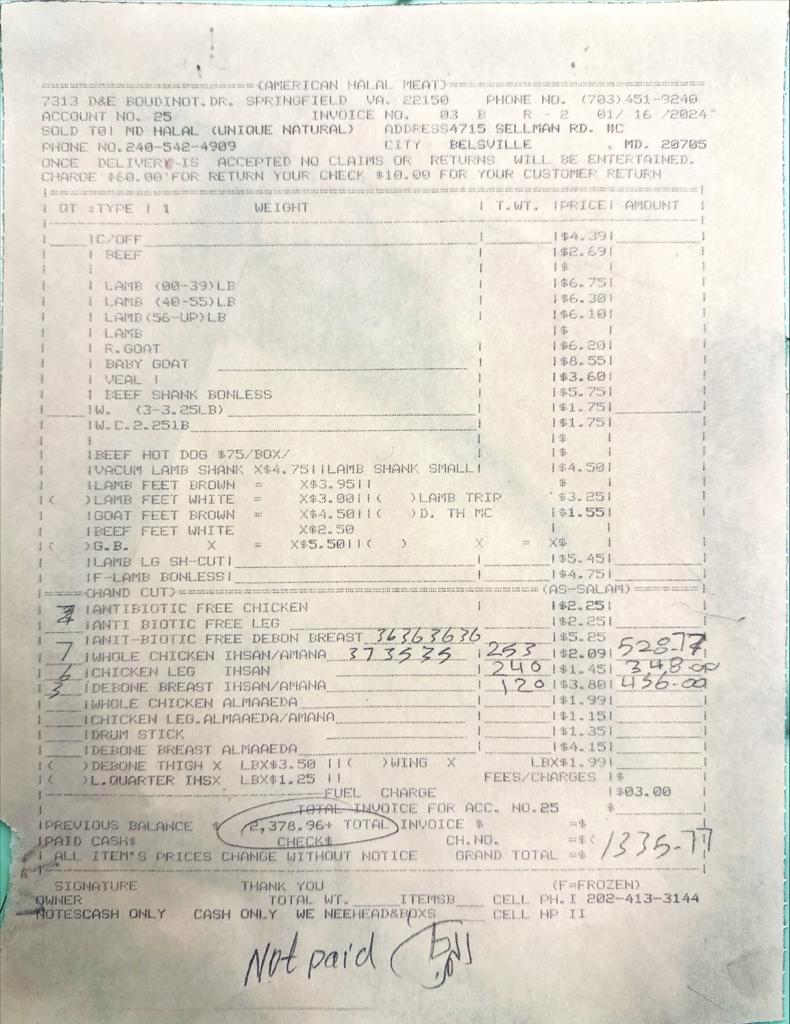 (AMERICAN HALAL MEAT)
7313 D&E BOUDINOT.DR. SPRINGFIELD VA. 22150 PHONE NO. (703)451-9240
ACCOUNT NO. 25 INVOICE NO. 03 B R - 2 01/ 16 /2024
SOLD TO! MD HALAL (UNIQUE NATURAL) ADDRESS4715 SELLMAN RD. #C
PHONE NO.240-542-4909 CITY BELSVILLE , MD. 20705
ONCE DELIVERY IS ACCEPTED NO CLAIMS OR RETURNS WILL BE ENTERTAINED.
CHARGE $60.00 FOR RETURN YOUR CHECK $10.00 FOR YOUR CUSTOMER RETURN
| QT :TYPE | 1 WEIGHT | T.WT. |PRICE| AMOUNT |
|C/OFF |$4.39|
| BEEF |$2.69|
| |$ |
| LAMB (00-39)LB |$6.75|
| LAMB (40-55)LB |$6.30|
| LAMB(56-UP)LB |$6.10|
| LAMB |$ |
| R.GOAT |$6.20|
| BABY GOAT |$8.55|
| VEAL | |$3.60|
| BEEF SHANK BONLESS |$5.75|
|W. (3-3.25LB) |$1.75|
|W.C.2.25lB |$1.75|
| |$ |
|BEEF HOT DOG $75/BOX/ |$ |
|VACUM LAMB SHANK X$4.75||LAMB SHANK SMALL| |$4.50|
|LAMB FEET BROWN = X$3.95|| $ |
|( )LAMB FEET WHITE = X$3.00||( )LAMB TRIP $3.25|
|GOAT FEET BROWN = X$4.50||( )D. TH MC |$1.55|
|BEEF FEET WHITE X$2.50
|( )G.B. X = X$5.50||( ) X = X$
|LAMB LG SH-CUT| |$5.45|
|F-LAMB BONLESS| |$4.75|
(HAND CUT) (AS-SALAM)
|ANTIBIOTIC FREE CHICKEN |$2.25|
|ANTI BIOTIC FREE LEG |$2.25|
|ANIT-BIOTIC FREE DEBON BREAST 36363636 |$5.25
7 |WHOLE CHICKEN IHSAN/AMANA 373535 |253 |$2.09| 528.77
6 |CHICKEN LEG IHSAN | 240 |$1.45| 348.00
3 |DEBONE BREAST IHSAN/AMANA | 120 |$3.80| 456.00
|WHOLE CHICKEN ALMAAEDA |$1.99|
|CHICKEN LEG.ALMAAEDA/AMANA |$1.15|
|DRUM STICK |$1.35|
|DEBONE BREAST ALMAAEDA |$4.15|
|( )DEBONE THIGH X LBX$3.50 ||( )WING X LBX$1.99|
|( )L.QUARTER IHSX LBX$1.25 || FEES/CHARGES |$
FUEL CHARGE |$03.00
TOTAL INVOICE FOR ACC. NO.25 $
|PREVIOUS BALANCE $ 2,378.96+ TOTAL INVOICE $ =$
|PAID CASH$ CHECK$ CH.NO. =$<
| ALL ITEM'S PRICES CHANGE WITHOUT NOTICE GRAND TOTAL =$ 1335.77
SIGNATURE THANK YOU (F=FROZEN)
OWNER TOTAL WT. ITEMSB CELL PH.I 202-413-3144
NOTESCASH ONLY CASH ONLY WE NEEHEAD&BOXS CELL HP II
Not paid